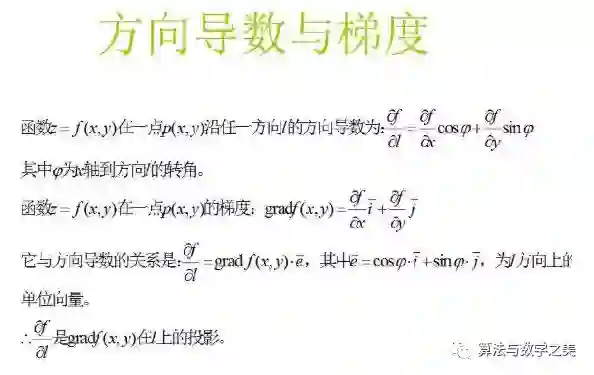 方向导数与梯度
函数z = f(x,y)在一点p(x,y)沿任一方向l的方向导数为: ∂f/∂l = ∂f/∂x cosφ + ∂f/∂y sinφ
其中φ为x轴到方向l的转角。
函数z = f(x,y)在一点p(x,y)的梯度: gradf(x,y) = ∂f/∂x i̅ + ∂f/∂y j̅
它与方向导数的关系是: ∂f/∂l = grad f(x,y)·e̅, 其中e̅ = cosφ·i̅ + sinφ·j̅, 为l方向上的
单位向量。
∴ ∂f/∂l 是gradf(x,y)在l上的投影。
算法与数学之美